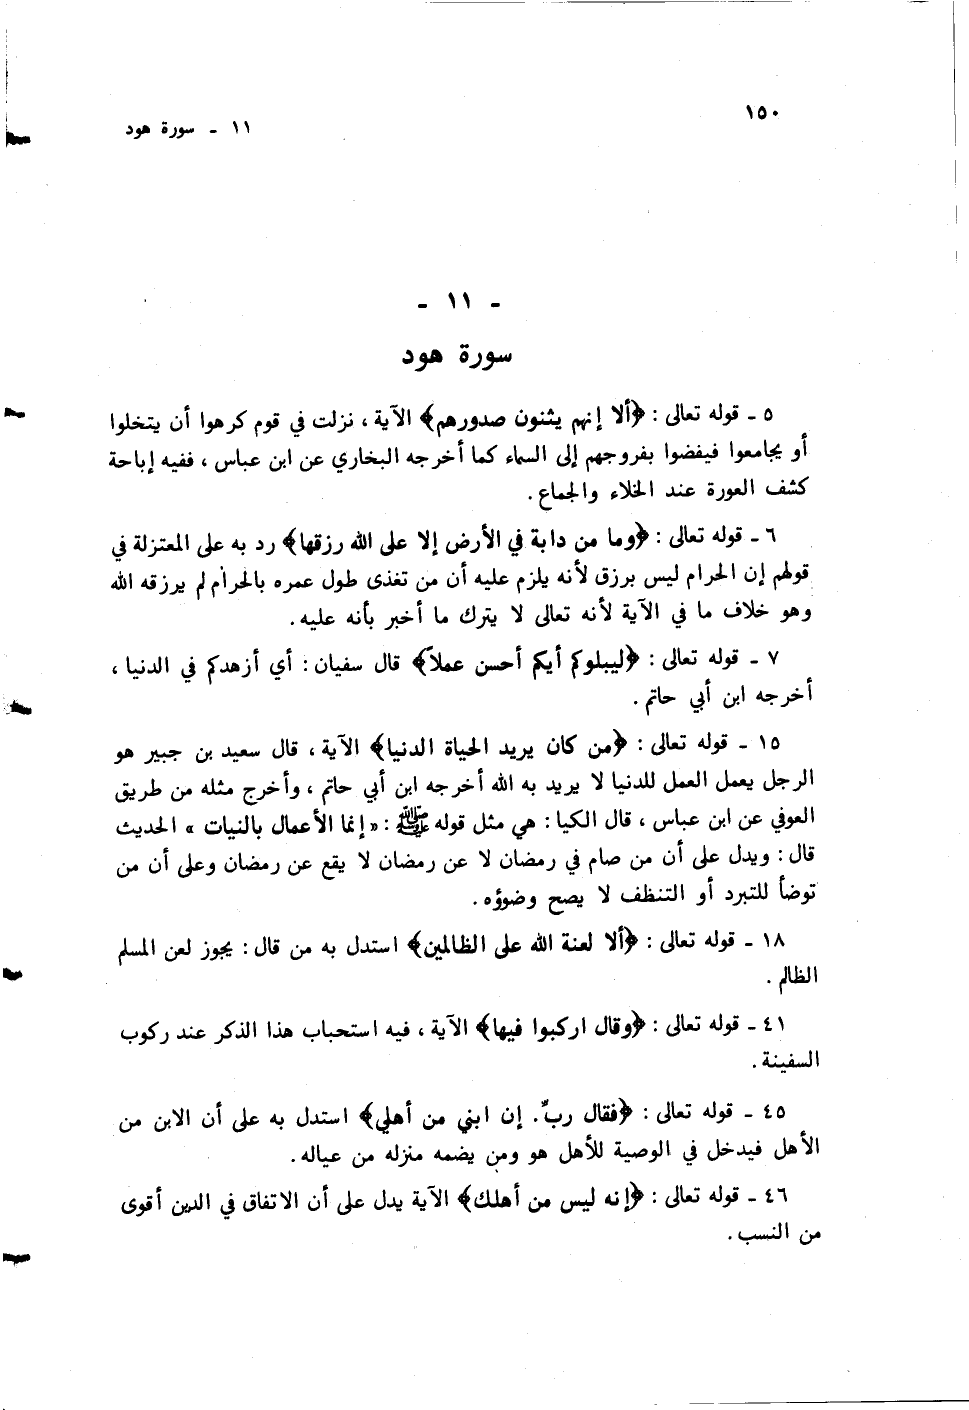 ١٥٠
١١ - سورة هود
- ١١ -
سورة هود
٥ - قوله تعالى : ﴿ألا إنهم يثنون صدورهم﴾ الآية ، نزلت في قوم كرهوا أن يتخلوا
أو يجامعوا فيفضوا بفروجهم إلى السماء كما أخرجه البخاري عن ابن عباس ، ففيه إباحة
كشف العورة عند الخلاء والجماع .
٦ - قوله تعالى : ﴿وما من دابة في الأرض إلا على الله رزقها﴾ رد به على المعتزلة في
قولهم إن الحرام ليس برزق لأنه يلزم عليه أن من تغذى طول عمره بالحرام لم يرزقه الله
وهو خلاف ما في الآية لأنه تعالى لا يترك ما أخبر بأنه عليه .
٧ - قوله تعالى : ﴿ليبلوكم أيكم أحسن عملاً﴾ قال سفيان : أي أزهدكم في الدنيا ،
أخرجه ابن أبي حاتم .
١٥ - قوله تعالى : ﴿من كان يريد الحياة الدنيا﴾ الآية ، قال سعيد بن جبير هو
الرجل يعمل العمل للدنيا لا يريد به الله أخرجه ابن أبي حاتم ، وأخرج مثله من طريق
العوفي عن ابن عباس ، قال الكيا : هي مثل قوله ﷺ : « إنما الأعمال بالنيات » الحديث
قال : ويدل على أن من صام في رمضان لا عن رمضان لا يقع عن رمضان وعلى أن من
توضأ للتبرد أو التنظف لا يصح وضوؤه .
١٨ - قوله تعالى : ﴿ألا لعنة الله على الظالمين﴾ استدل به من قال : يجوز لعن المسلم
الظالم .
٤١ - قوله تعالى : ﴿وقال اركبوا فيها﴾ الآية ، فيه استحباب هذا الذكر عند ركوب
السفينة .
٤٥ - قوله تعالى : ﴿فقال ربِّ. إن ابني من أهلي﴾ استدل به على أن الابن من
الأهل فيدخل في الوصية للأهل هو ومن يضمه منزله من عياله .
٤٦ - قوله تعالى : ﴿إنه ليس من أهلك﴾ الآية يدل على أن الاتفاق في الدين أقوى
من النسب .